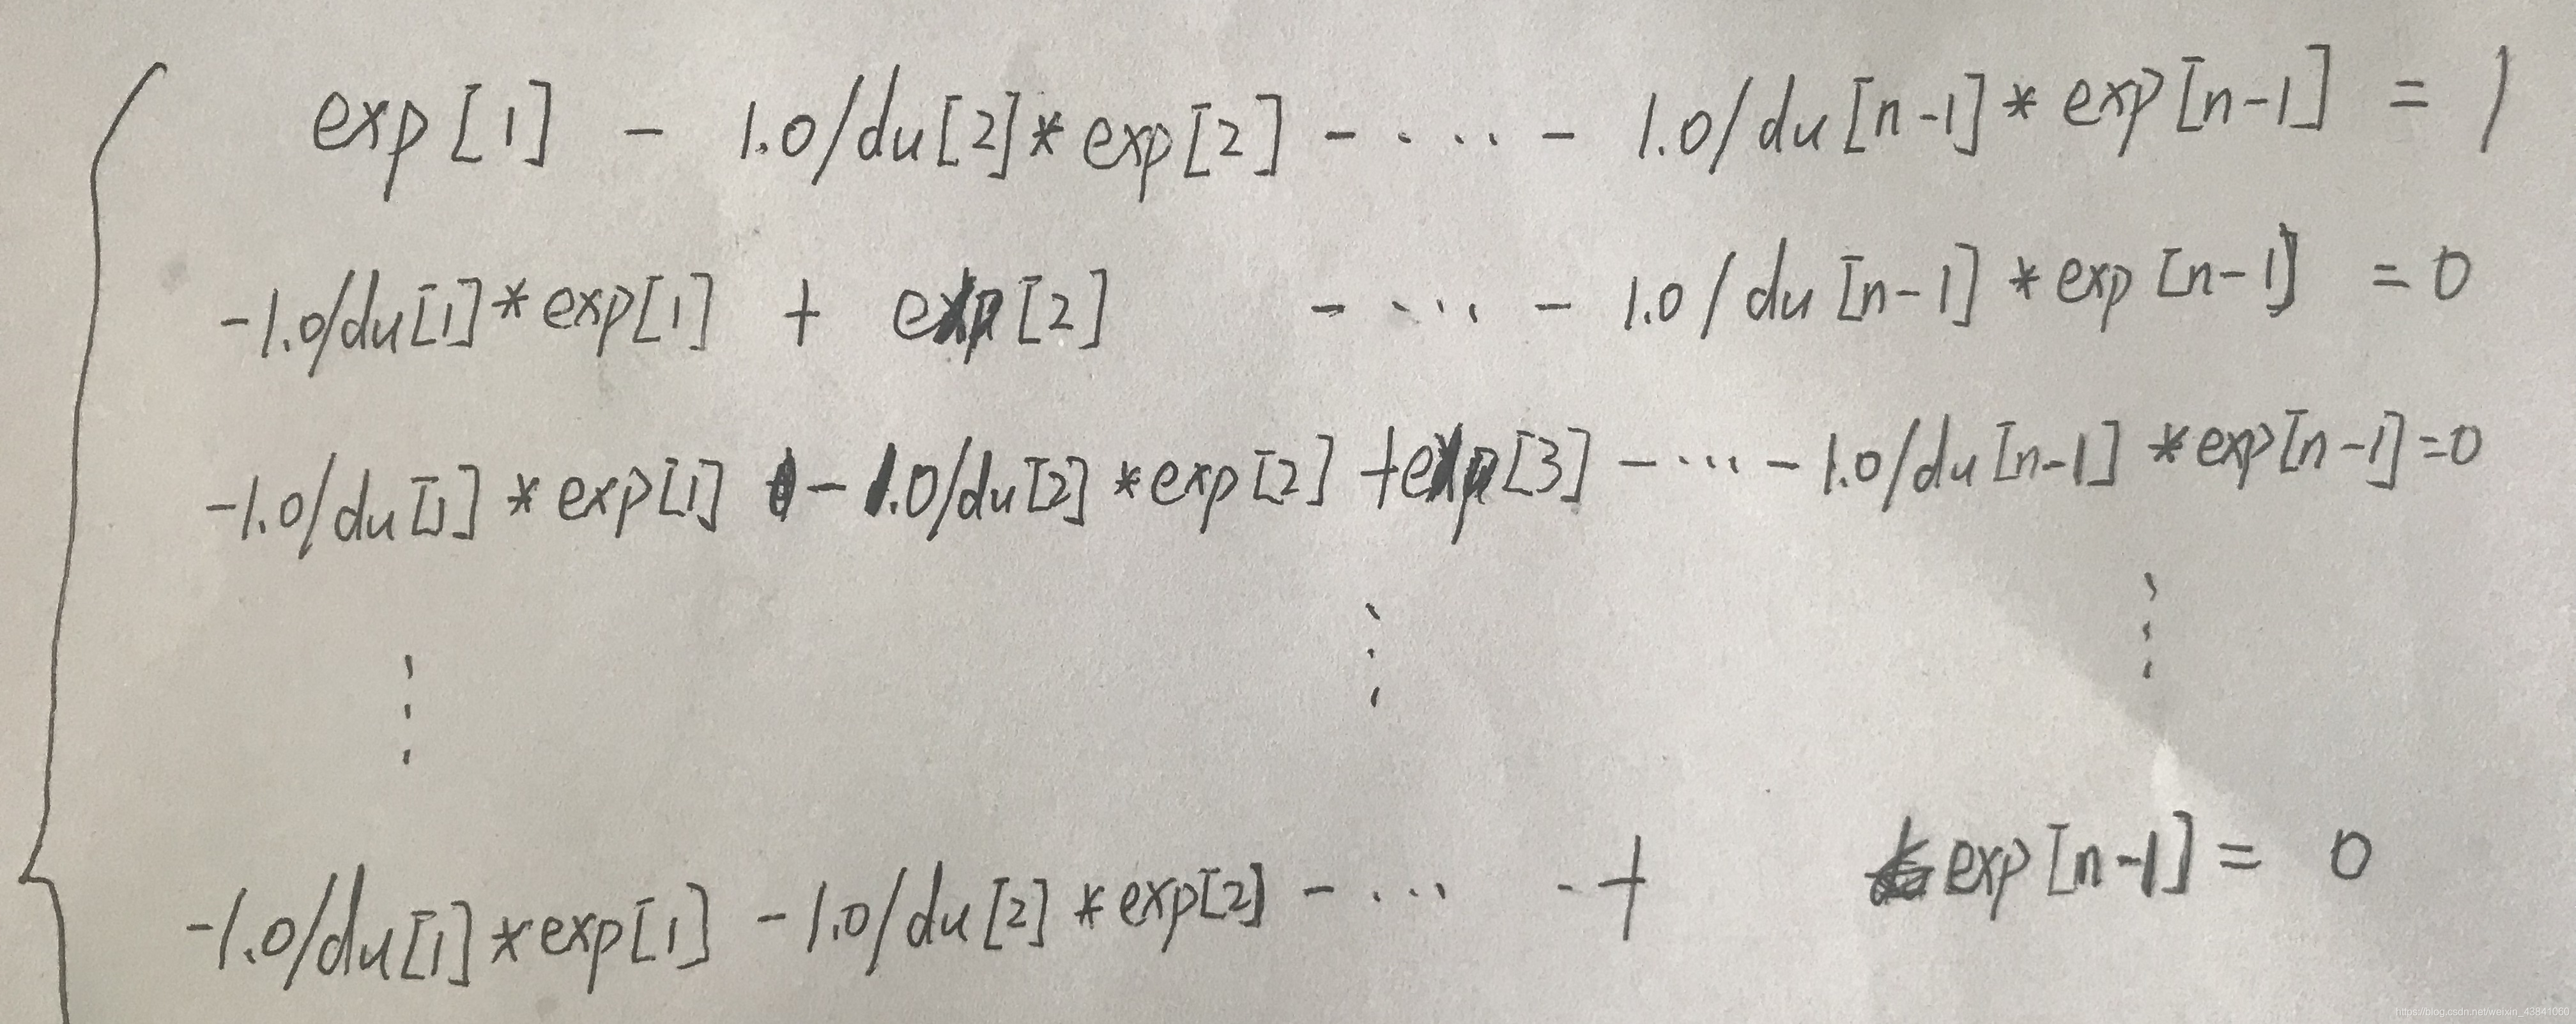 exp[1] - 1.0/du[2]*exp[2] - ... - 1.0/du[n-1]*exp[n-1] = 1
-1.0/du[1]*exp[1] + exp[2] - ... - 1.0/du[n-1]*exp[n-1] = 0
-1.0/du[1]*exp[1] - 1.0/du[2]*exp[2] + exp[3] - ... - 1.0/du[n-1]*exp[n-1] = 0
⋮ ⋮ ⋮
-1.0/du[1]*exp[1] - 1.0/du[2]*exp[2] - ... - + exp[n-1] = 0
https://blog.csdn.net/weixin_43841000